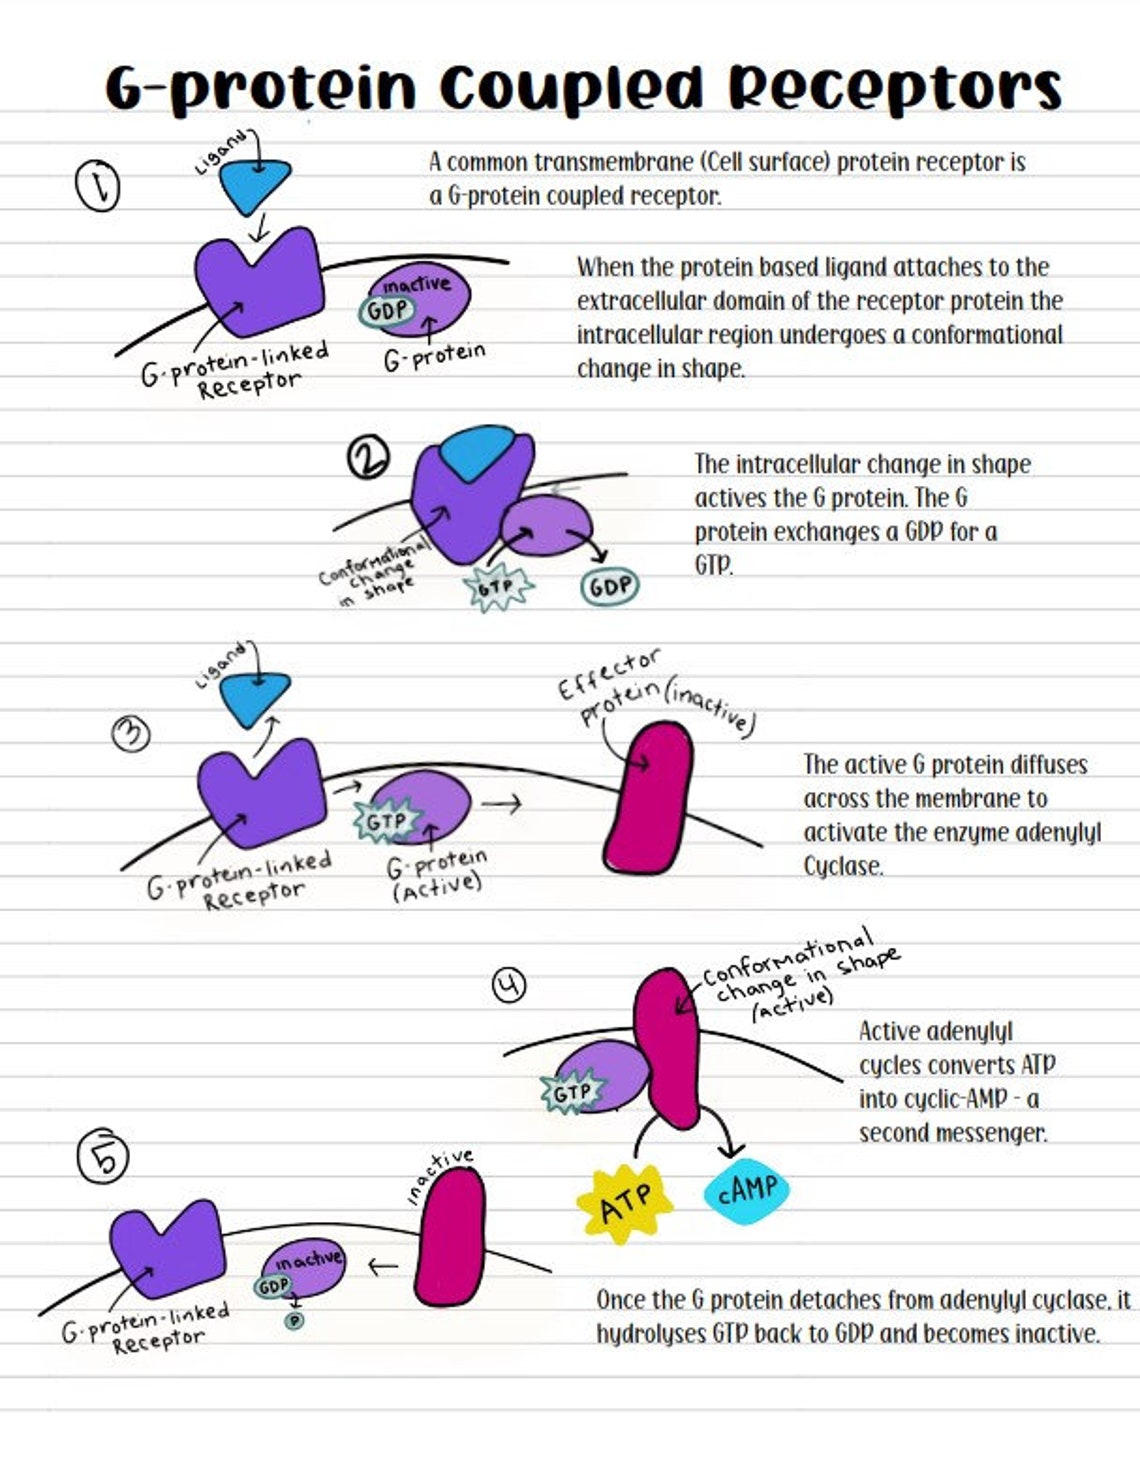 G-protein Coupled Receptors
1
Ligand
A common transmembrane (Cell surface) protein receptor is
a G-protein coupled receptor.
When the protein based ligand attaches to the
extracellular domain of the receptor protein the
intracellular region undergoes a conformational
change in shape.
inactive
GDP
G-protein-linked
Receptor
G-protein
2
The intracellular change in shape
actives the G protein. The G
protein exchanges a GDP for a
GTP.
Conformational
change
in shape
GTP
GDP
3
Ligand
Effector
protein (inactive)
The active G protein diffuses
across the membrane to
activate the enzyme adenylyl
Cyclase.
GTP
G-protein-linked
Receptor
G-protein
(Active)
4
Conformational
change in shape
(Active)
Active adenylyl
cycles converts ATP
into cyclic-AMP - a
second messenger.
GTP
ATP
cAMP
5
inactive
inactive
GDP
P
G-protein-linked
Receptor
Once the G protein detaches from adenylyl cyclase, it
hydrolyses GTP back to GDP and becomes inactive.